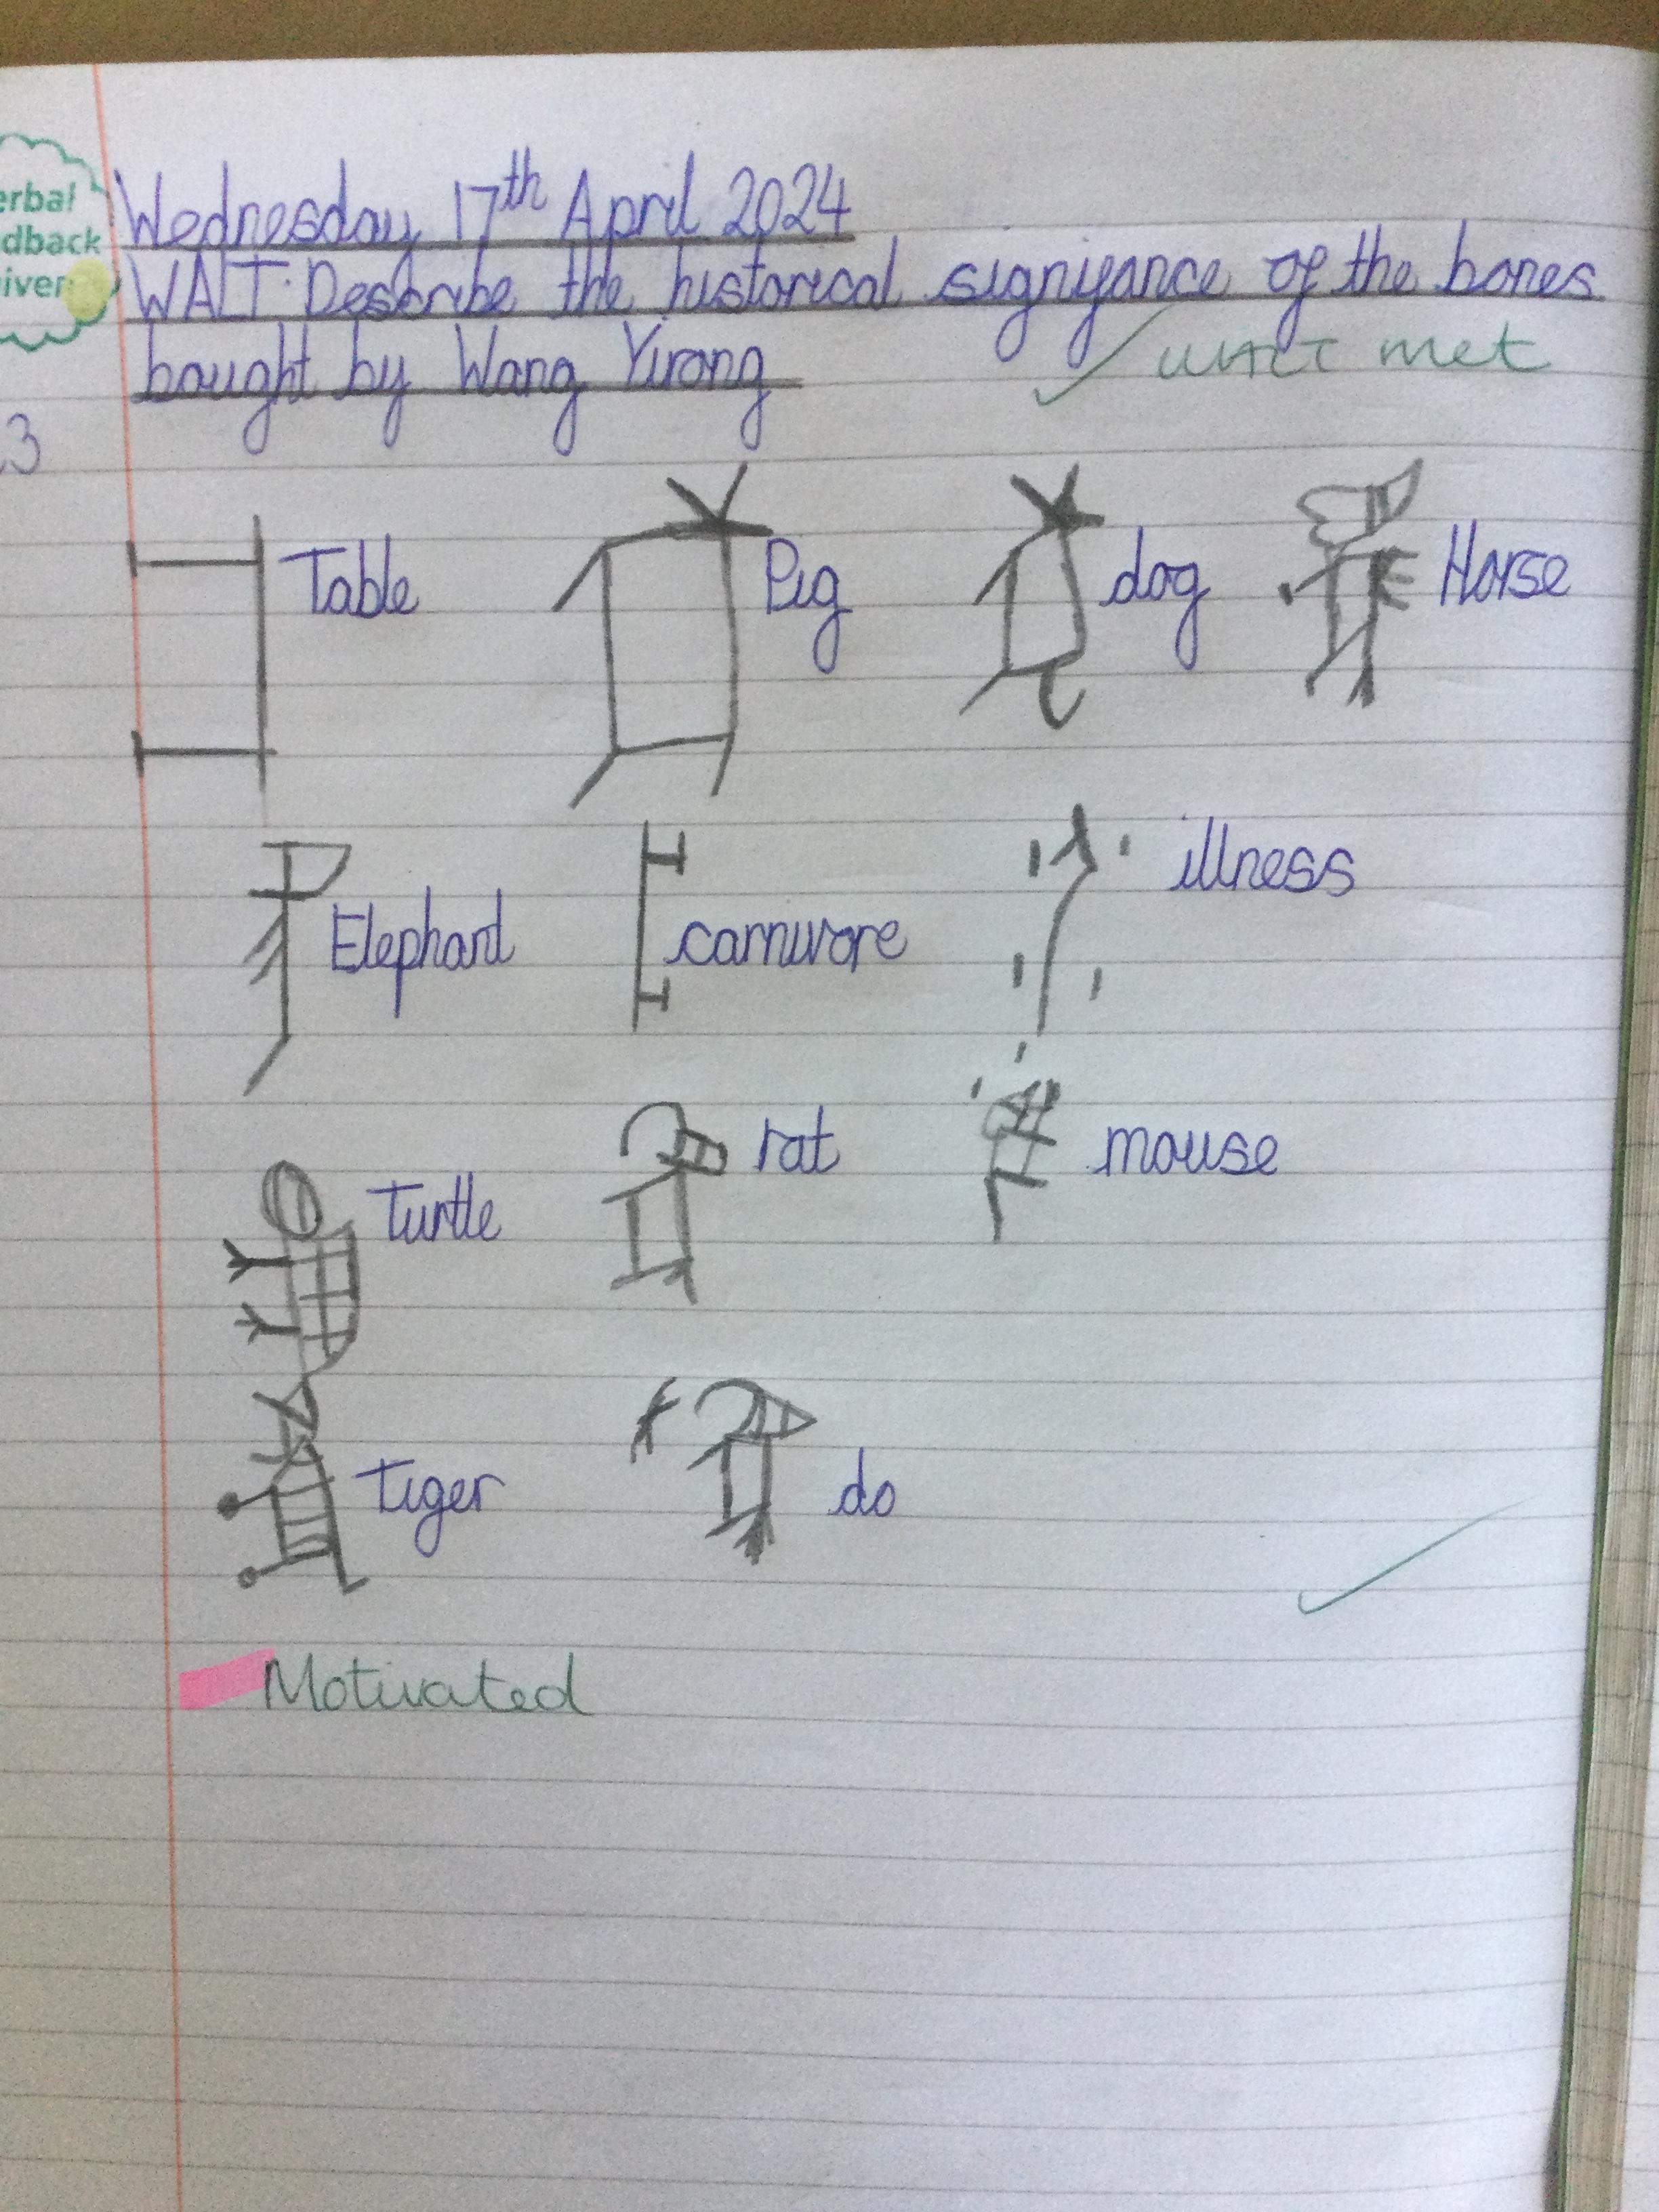 erbal
dback
iven
Wednesday 17th April 2024
WALT: Describe the historical signifance of the bones
bought by Wang Yirong
WALT met
3
Table Pig dog Horse
Elephant carnivore illness
Turtle rat mouse
Tiger do
Motivated